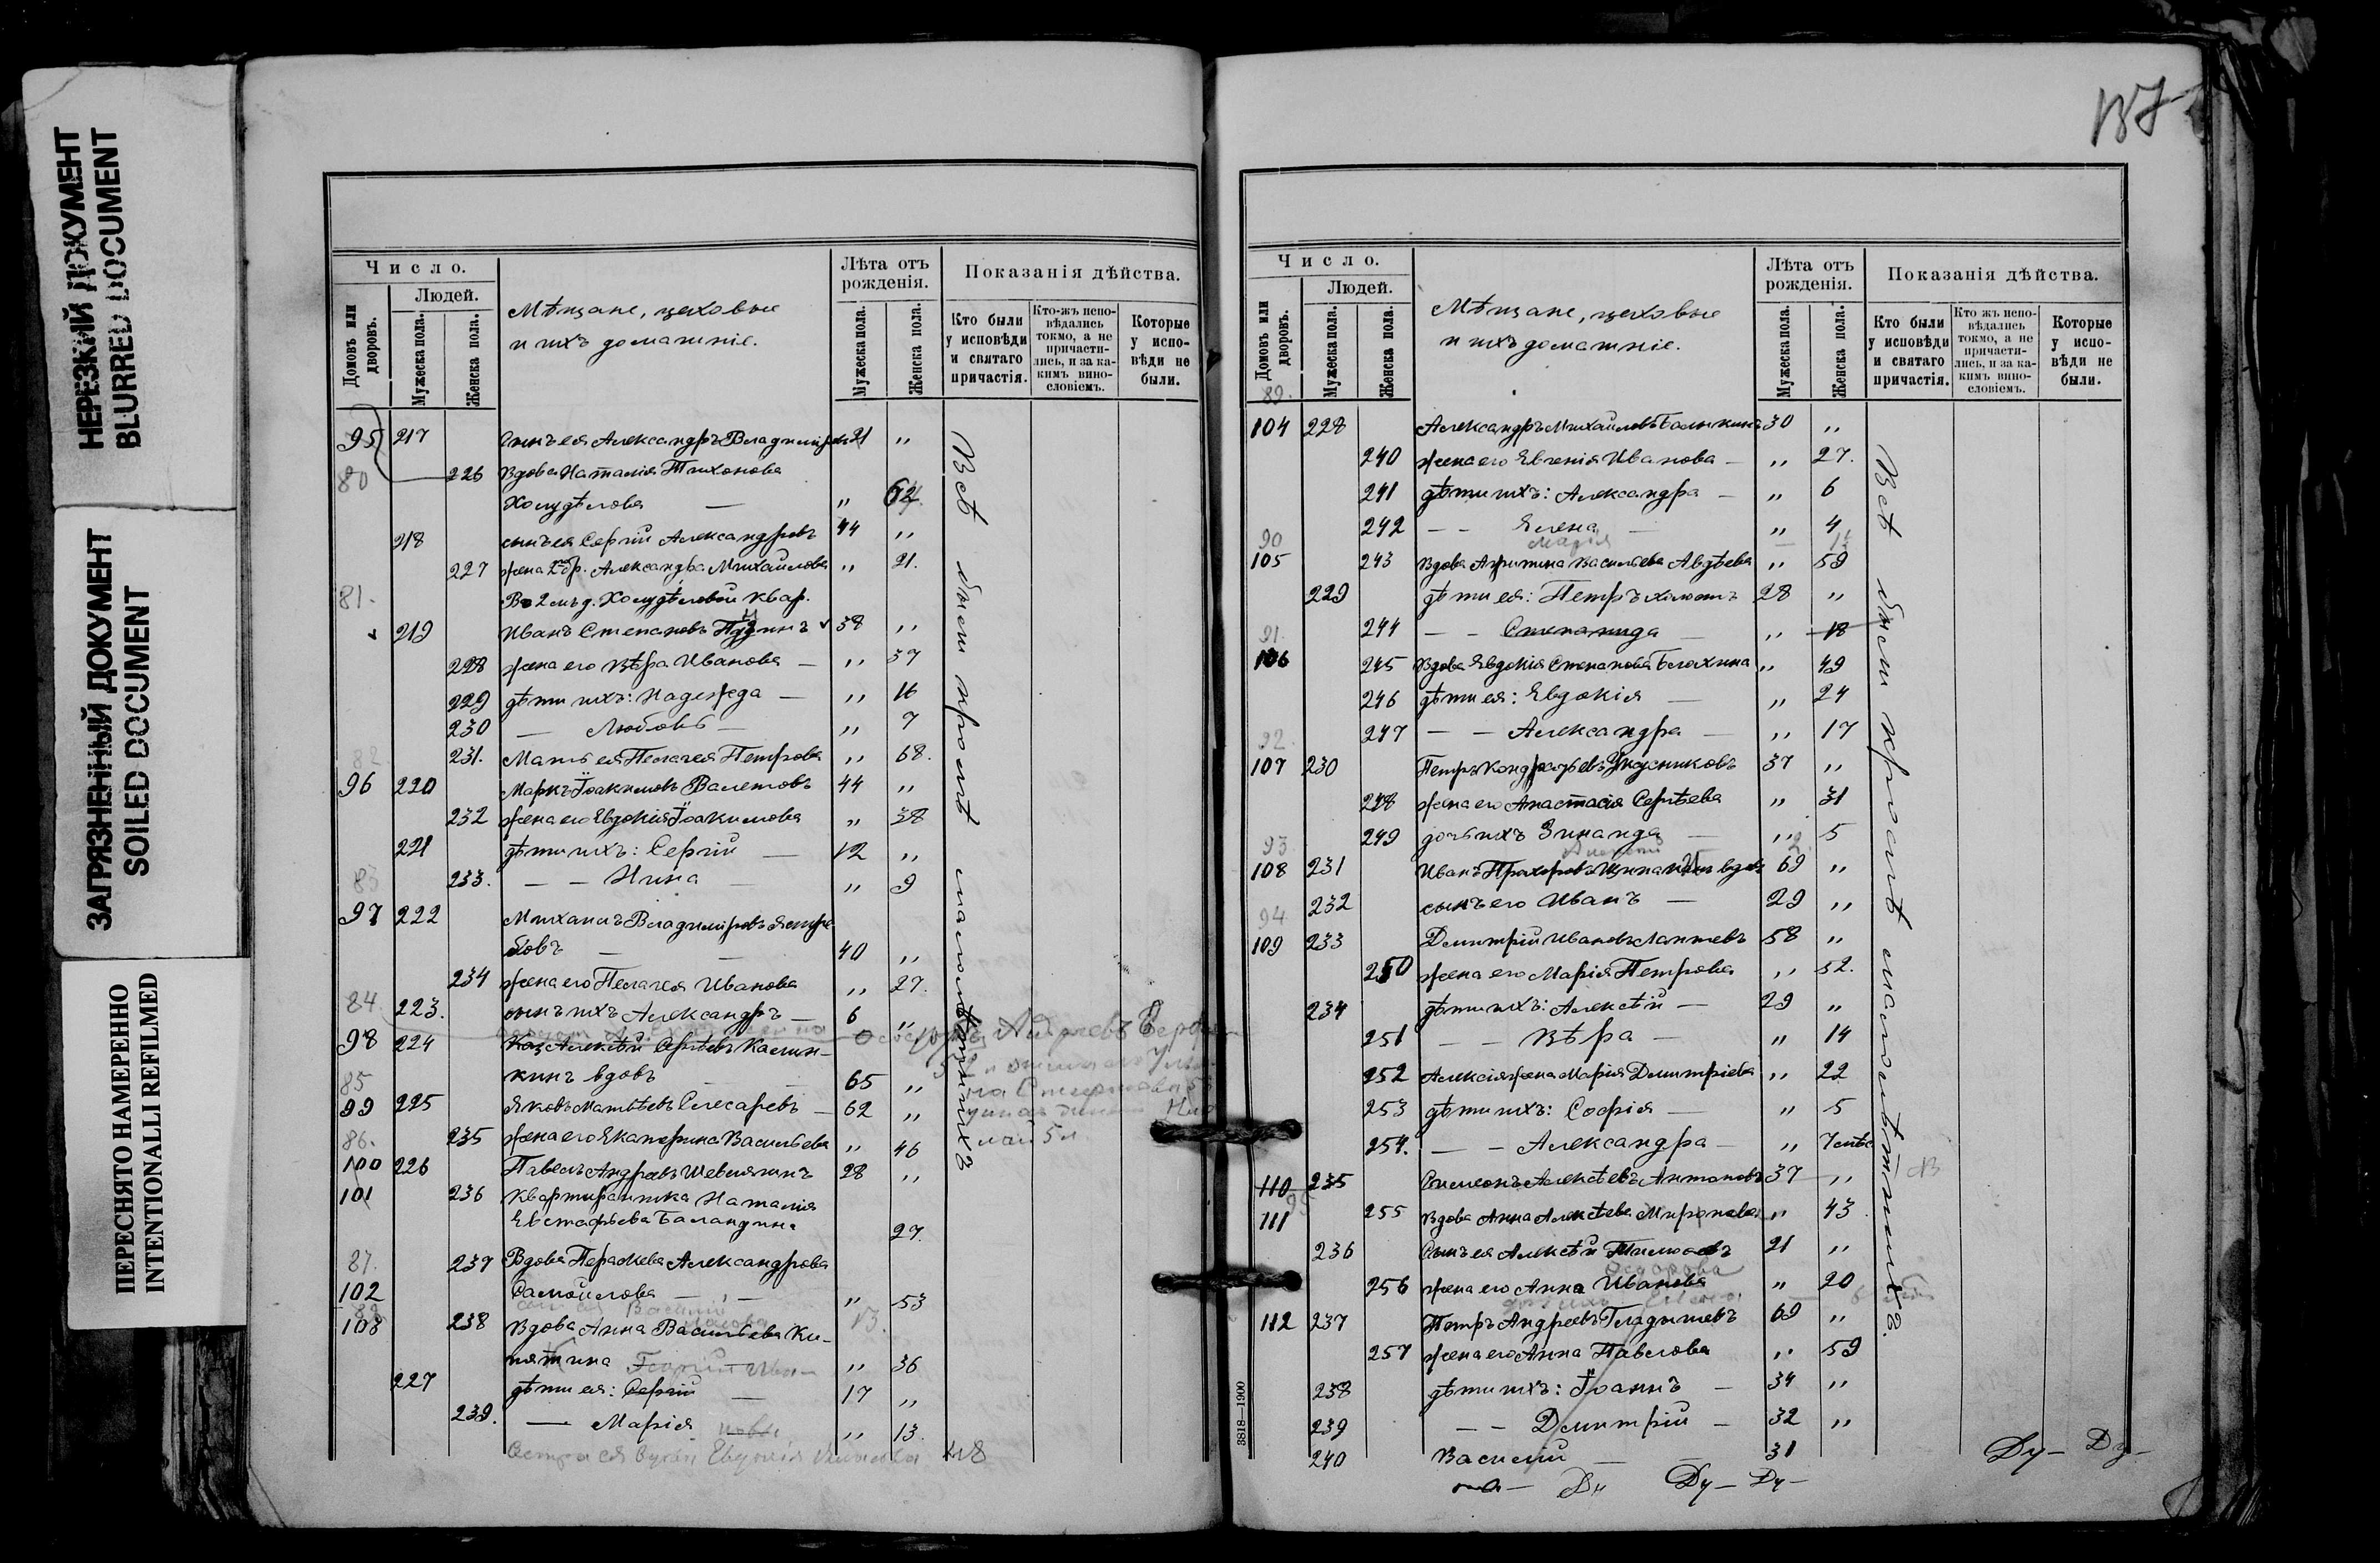 НЕРЕЗКИЙ ДОКУМЕНТ
BLURRED DOCUMENT
ЗАГРЯЗНЕННЫЙ ДОКУМЕНТ
SOILED DOCUMENT
ПЕРЕСНЯТО НАМЕРЕННО
INTENTIONALLI REFILMED
Число.
Людей.
Домовъ или дворовъ.
Мужеска пола.
Женска пола.
Мѣщане, цеховые
и ихъ домашніе.
Лѣта отъ рожденія.
Мужеска пола.
Женска пола.
Показанія дѣйства.
Кто были у исповѣди и святаго причастія.
Кто-жъ исповѣдались токмо, а не причастились, и за какимъ винословіемъ.
Которые у исповѣди не были.
95 217 Сынъ ея Александръ Владиміровъ 21 "
80 226 Вдова Наталія Тихонова
Холудѣлова — "
218 сынъ ея Сергій Александровъ 44 "
227 жена 2 бр. Александра Михайлова " 21.
81. Холудѣловой квар.
219 Иванъ Степановъ 38 "
228 жена его Вѣра Ивановa — " 37
229 дѣти ихъ: Надежда — " 16
230 — Любовь — " 7
82 231. Мать ея Пелагея Петрова " 68.
96 220 Маркъ Іоакимовъ Валетовъ 44 "
232 жена его Евдокія Іоакимова " 38
221 дѣти ихъ: Сергій — 12 "
83 233. — — Нина — " 9
97 222 Михаилъ Владиміровъ Ястре-
бовъ — — 40 "
234 жена его Пелагея Иванова " 27.
84. 223. сынъ ихъ Александръ — 6 "
98 224 Алексѣй Сергѣевъ Калин-
кинъ вдовъ — 65 "
85
99 225 Яковъ Матвѣевъ Слесаревъ — 62 "
86. 235 жена его Екатерина Васильева " 46
100 226 Павелъ Андреевъ Шевлягинъ 28 "
101 236 Квартирантка Наталія
Евстафьева Баландина 27.
87. 237 Вдова Параскева Александрова
102 Самойлова — " — " 53
103 238 Вдова Анна Васильева Ки-
" 36
227 дѣти ея: Сергій — 17 "
239. — Марія " 13.
Всѣ были кромѣ малолѣтнихъ
137
Число.
Людей.
Домовъ или дворовъ.
Мужеска пола.
Женска пола.
Мѣщане, цеховые
и ихъ домашніе.
Лѣта отъ рожденія.
Мужеска пола.
Женска пола.
Показанія дѣйства.
Кто были у исповѣди и святаго причастія.
Кто жъ исповѣдались токмо, а не причастились, и за какимъ винословіемъ.
Которые у исповѣди не были.
89.
104 228 Александръ Михайловъ Балыкинъ 30 "
240 жена его Евгенія Иванова — " 27.
241 дѣти ихъ: Александра — " 6
242 — — Елена — " 4
90 Марія
105 243 Вдова Акулина Васильева Авдѣева " 59
229 дѣти ея: Петръ холостъ 28 "
91. 244 — — Степанида — " 18
106 245 Вдова Евдокія Степанова Белохина " 49
246 дѣти ея: Евдокія — " 24
92. 247 — — Александра — " 17
107 230 Петръ Кондратьевъ Уксусниковъ 37 "
248 жена его Анастасія Сергѣева " 31
93 249 дочь ихъ Зинаида — " 5
108 231 Иванъ Прохоровъ вдовъ 69 "
94 232 сынъ его Иванъ — 29 "
109 233 Димитрій Ивановъ Лаптевъ 58 "
250 жена его Марія Петрова " 52.
234 дѣти ихъ: Алексѣй — 29 "
251 — — Вѣра — " 14
252 Алексія жена Марія Димитріева " 22
253 дѣти ихъ: Софія — " 5
254. — — Александра — " 7 мѣс
110 235 Симеонъ Алексѣевъ Антоновъ 37 "
95
111 255 Вдова Анна Алексѣева Миронова " 43
236 Сынъ ея Алексѣй 21 "
256 жена его Анна Иванова " 20
112 237 Петръ Андреевъ Гладышевъ 69 "
257 жена его Анна Павлова " 59
238 дѣти ихъ: Іоаннъ — 34 "
239 — — Димитрій — 32 "
240 Василій — — 31
Всѣ были кромѣ малолѣтнихъ.
3818—1900